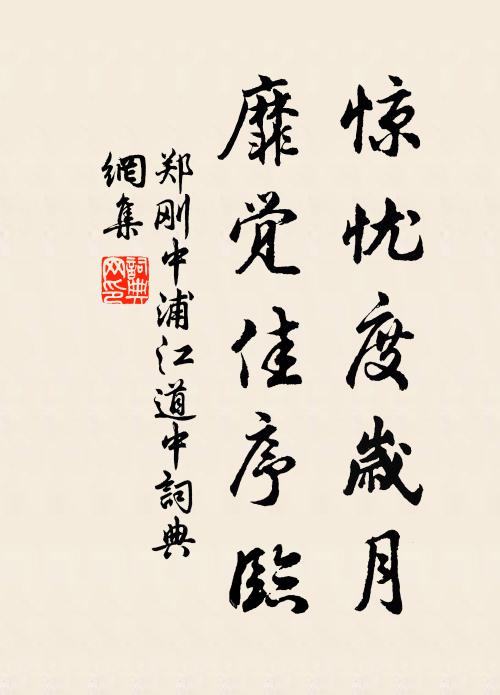 惊忧度歲月
靡觉佳序臨
郑刚中浦江道中詞典
網集
詞典网印